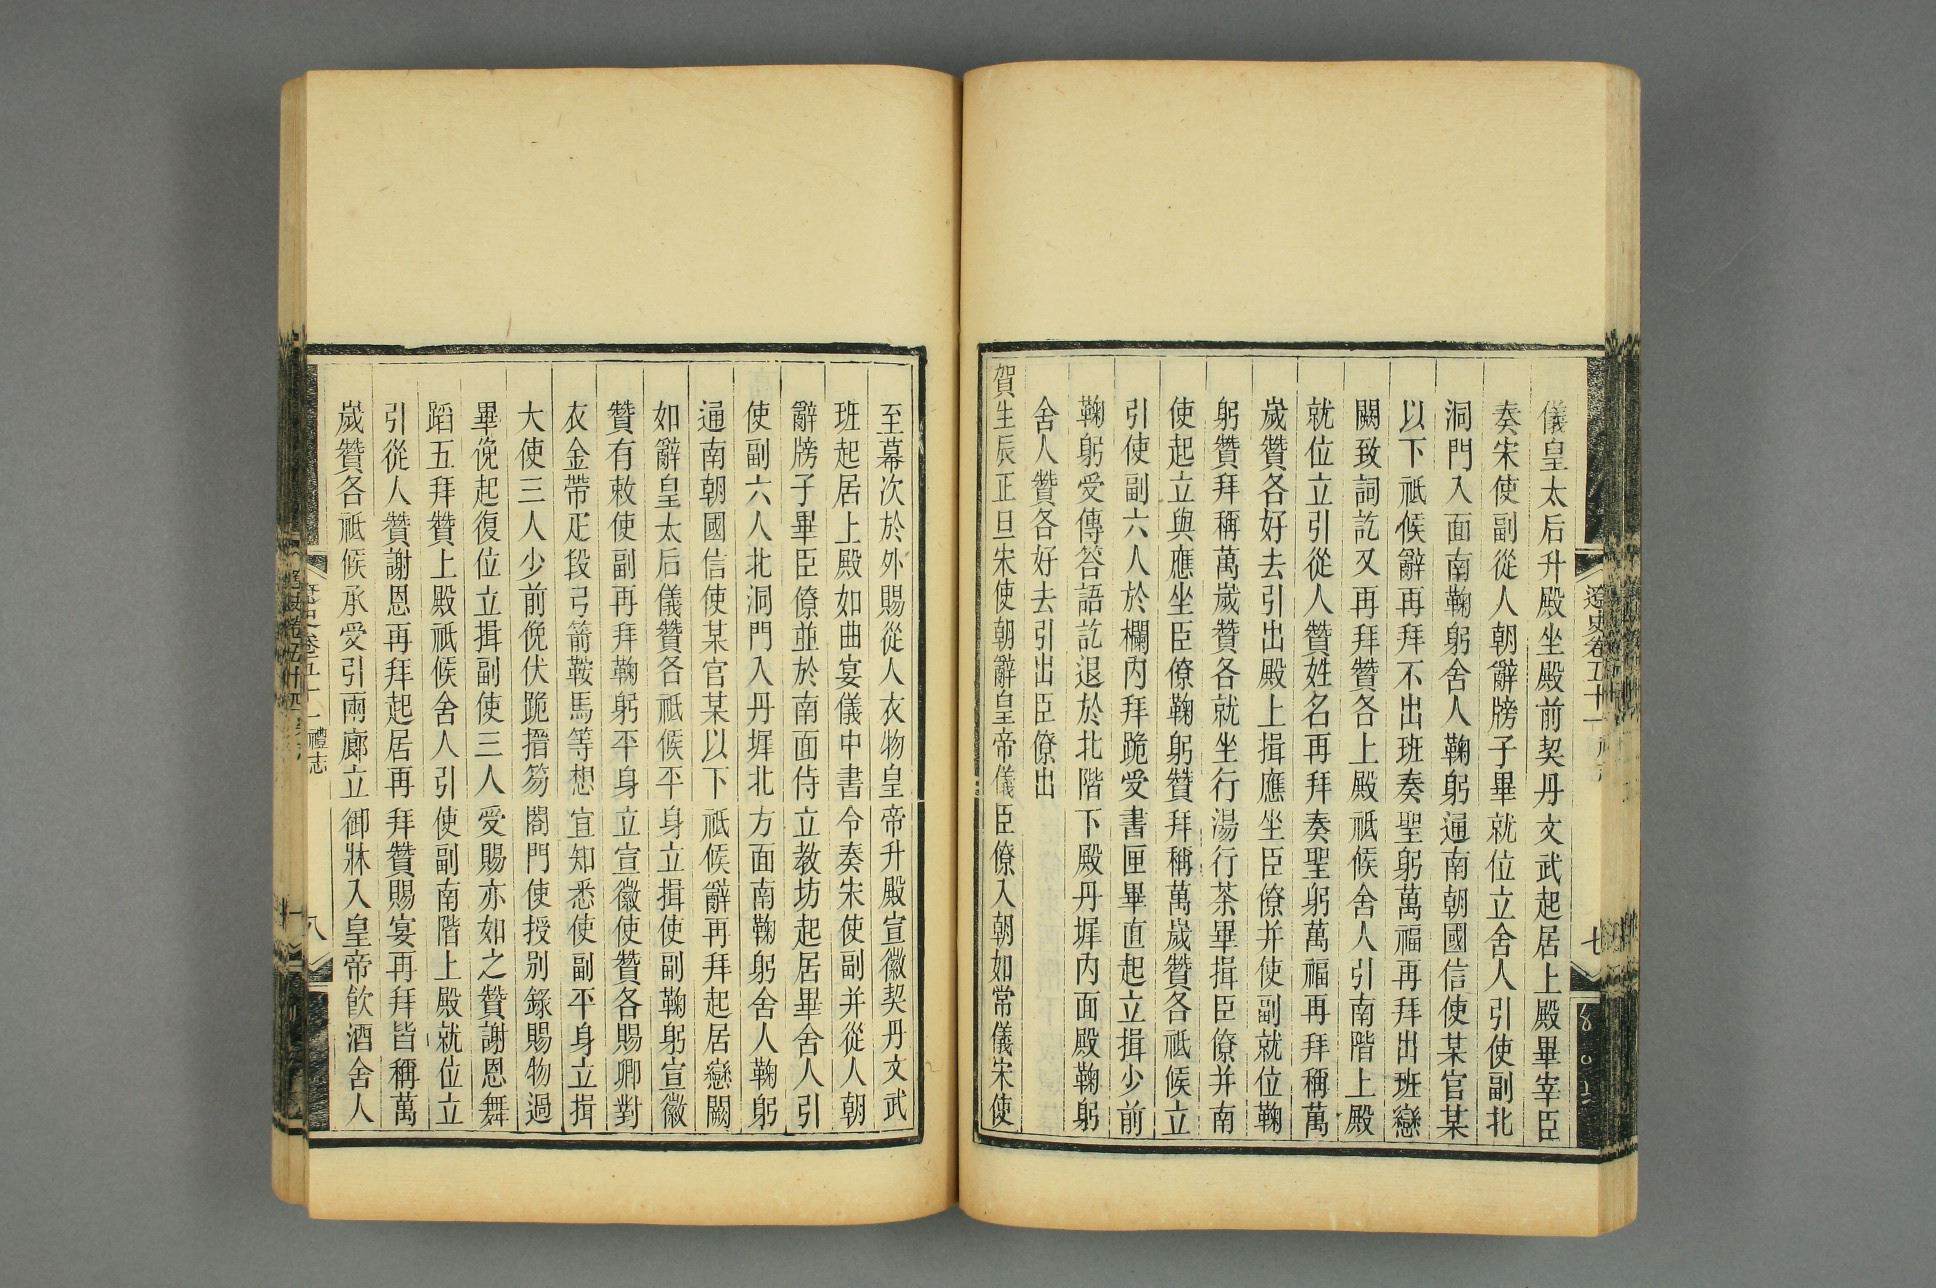 儀皇太后升殿坐殿前契丹文武起居上殿畢宰臣
奏宋使副從人朝辭牓子畢就位立舍人引使副北
洞門入面南鞠躬舍人鞠躬通南朝國信使某官某
以下祗候辭再拜不出班奏聖躬萬福再拜出班戀
闕致詞訖又再拜贊各上殿祗候舍人引南階上殿
就位立引從人贊姓名再拜奏聖躬萬福再拜稱萬
歲贊各好去引出殿上揖應坐臣僚并使副就位鞠
躬贊拜稱萬歲贊各就坐行湯行茶畢揖臣僚并南
使起立與應坐臣僚鞠躬贊拜稱萬歲贊各祗候立
引使副六人於欄內拜跪受書匣畢直起立揖少前
鞠躬受傳答語訖退於北階下殿丹墀內面殿鞠躬
舍人贊各好去引出臣僚出
賀生辰正旦宋使朝辭皇帝儀臣僚入朝如常儀宋使
遼史卷五十一
七
至幕次於外賜從人衣物皇帝升殿宣徽契丹文武
班起居上殿如曲宴儀中書令奏宋使副并從人朝
辭牓子畢臣僚並於南面侍立教坊起居畢舍人引
使副六人北洞門入丹墀北方面南鞠躬舍人鞠躬
通南朝國信使某官某以下祗候辭再拜起居戀闕
如辭皇太后儀贊各祗候平身立揖使副鞠躬宣徽
贊有敕使副再拜鞠躬平身立宣徽使贊各賜卿對
衣金帶疋段弓箭鞍馬等想宜知悉使副平身立揖
大使三人少前俛伏跪搢笏閤門使授別錄賜物過
畢俛起復位立揖副使三人受賜亦如之贊謝恩舞
蹈五拜贊上殿祗候舍人引使副南階上殿就位立
引從人贊謝恩再拜起居再拜贊賜宴再拜皆稱萬
歲贊各祗候承受引兩廊立御牀入皇帝飲酒舍人
遼史卷五十一 禮志
八